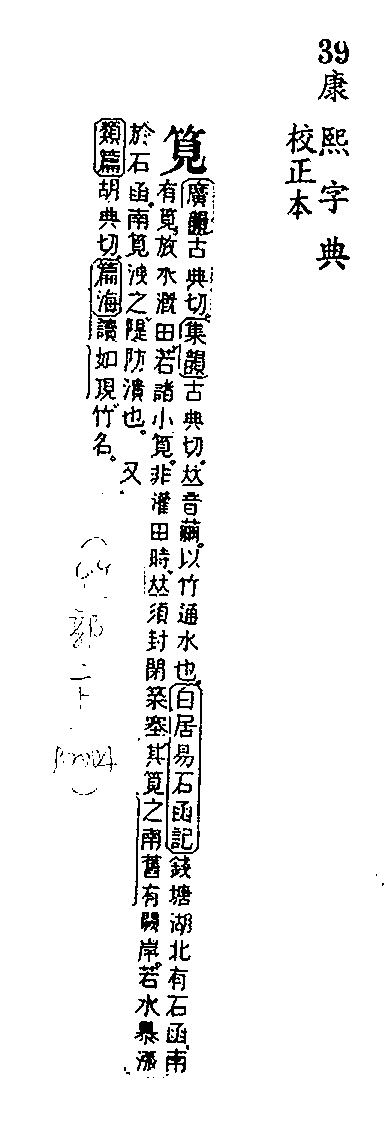 39康熙字典
校正本
筧廣韻古典切集韻古典切𠀤音繭。以竹通水也。白居易石函記錢塘湖北有石函南
有筧。放水溉田若諸小筧。非灌田時𠀤須封閉築塞其筧之南舊有闕岸。若水暴漲
於石函。南筧洩之隄防潰也。又
類篇胡典切。篇海讀如現竹名。